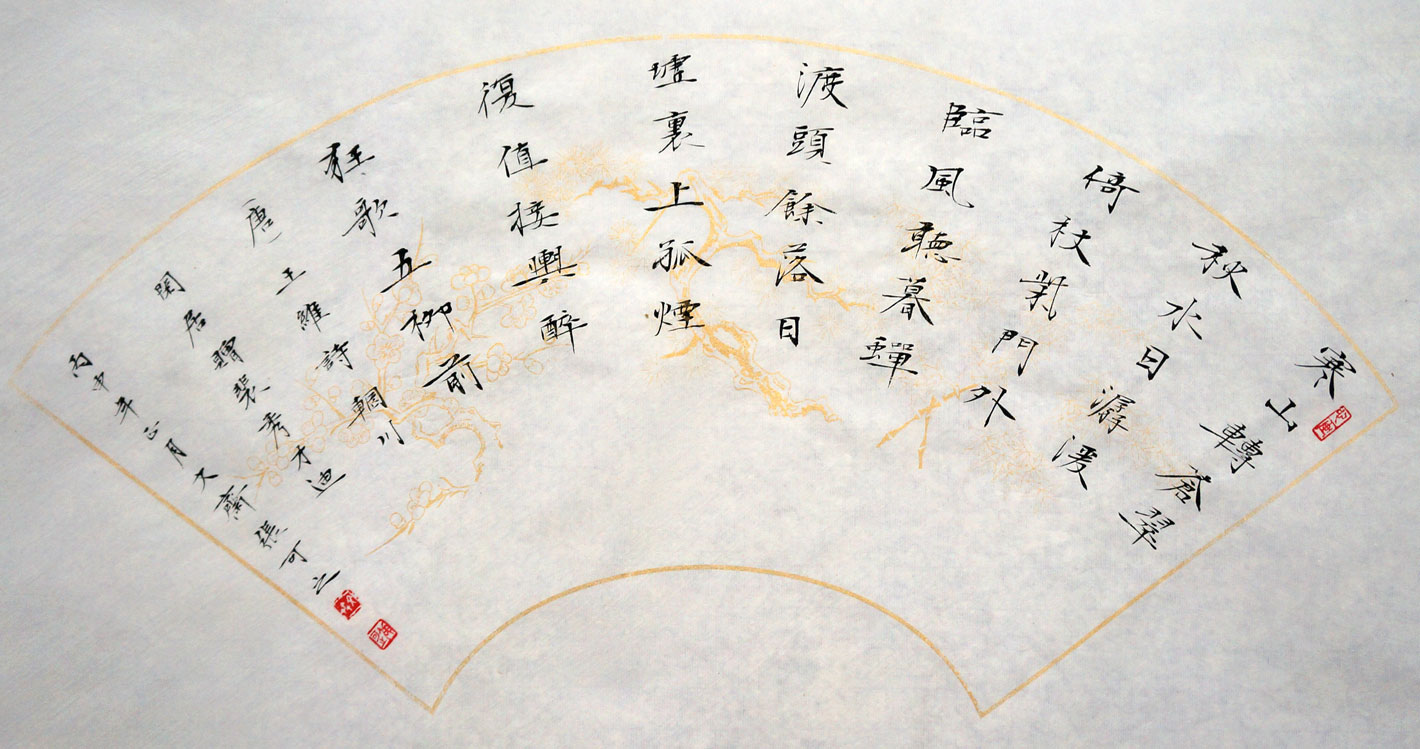 寒山轉蒼翠
秋水日潺湲
倚杖柴門外
臨風聽暮蟬
渡頭餘落日
墟裏上孤煙
復值接輿醉
狂歌五柳前
唐王維詩輞川
閑居贈裴秀才迪
丙申年正月齋張可之